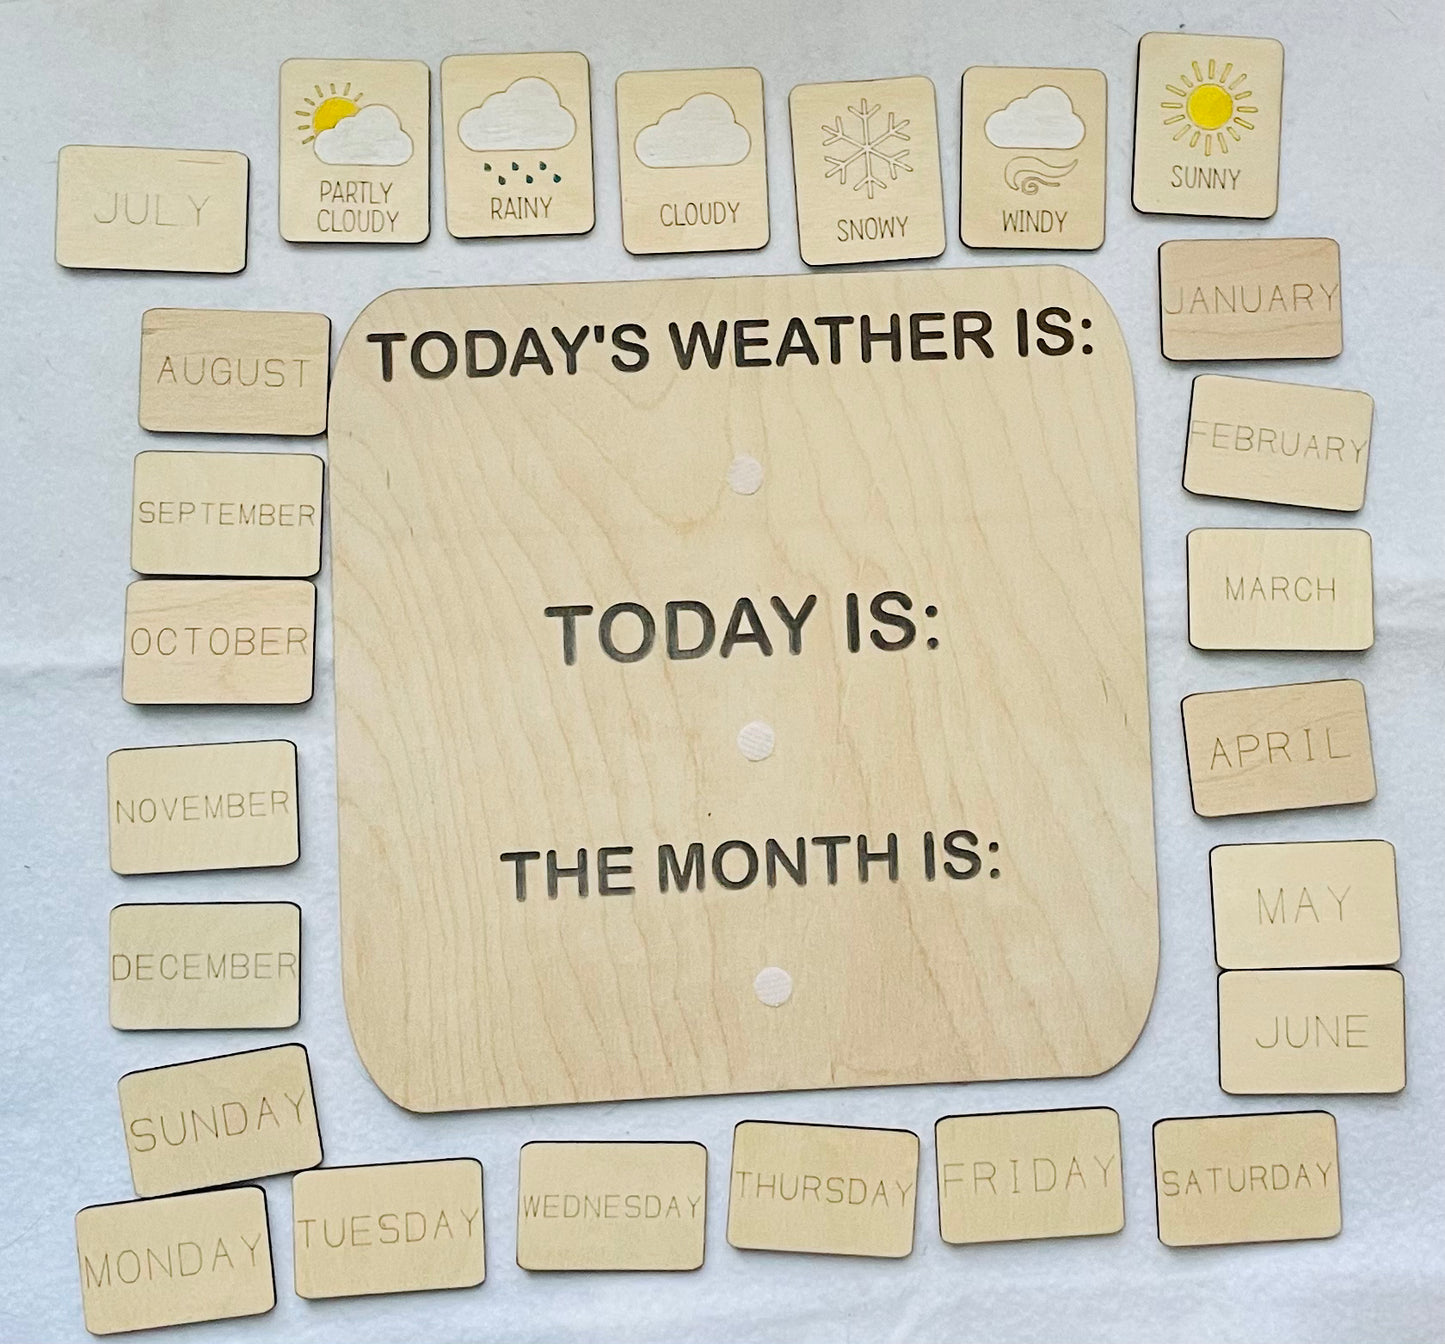 PARTLY
CLOUDY
RAINY
CLOUDY
SNOWY
WINDY
SUNNY
JULY
AUGUST
SEPTEMBER
OCTOBER
NOVEMBER
DECEMBER
TODAY'S WEATHER IS:
TODAY IS:
THE MONTH IS:
JANUARY
FEBRUARY
MARCH
APRIL
MAY
JUNE
SUNDAY
MONDAY
TUESDAY
WEDNESDAY
THURSDAY
FRIDAY
SATURDAY